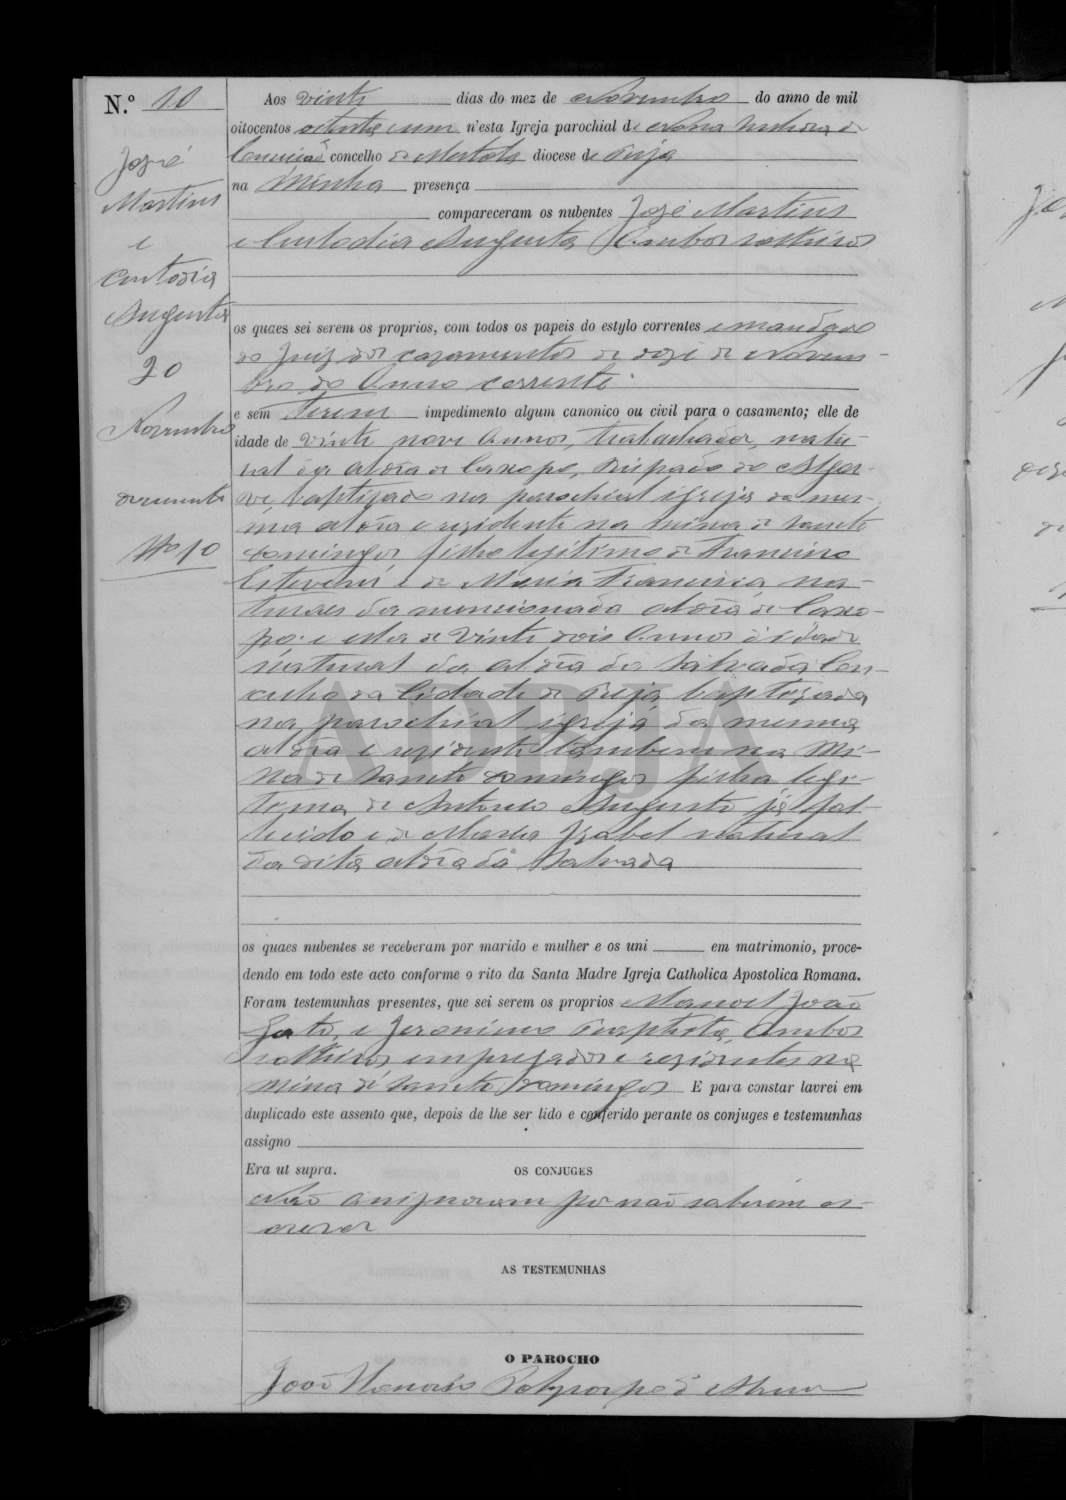 N.º 10
José
Martins
e
Custodia
Augusta
20
Novembro
documento
Nº 10
Aos vinte dias do mez de Novembro do anno de mil
oitocentos oitenta e um n'esta Igreja parochial de Nossa Senhora da
Conceição concelho de Mertola diocese de Beja
na minha presença
compareceram os nubentes José Martins
e Custodia Augusta, ambos solteiros
os quaes sei serem os proprios, com todos os papeis do estylo correntes e mandado
do Juiz dos casamentos de doze de Novem-
bro do Anno corrente
e sem terem impedimento algum canonico ou civil para o casamento; elle de
idade de vinte nove Annos, trabalhador, natu-
ral da aldêa de Caxopo, Bispado do Algar-
ve, baptizado na parochial igreja da mes-
ma aldêa e rezidente na mina de Sancto
Domingos, filho legitimo de Francisco
e de Maria Francisca, na-
turaes da mencionada aldêa de Caxo-
po: e ella de vinte dois Annos d'idade
natural da aldêa da Salvada Con-
celho da Cidade de Beja, baptizada
na parochial igreja da mesma
aldêa e rezidente tambem na Mi-
na de Sancto Domingos filha legi-
tima de Antonio Augusto já fal-
lecido e de Maria Izabel natural
da dita aldêa da Salvada
os quaes nubentes se receberam por marido e mulher e os uni em matrimonio, proce-
dendo em todo este acto conforme o rito da Santa Madre Igreja Catholica Apostolica Romana.
Foram testemunhas presentes, que sei serem os proprios Manoel João
Gato, e Jeronimo Baptista, ambos
solteiros, empregados e rezidentes na
mina de Sancto Domingos E para constar lavrei em
duplicado este assento que, depois de lhe ser lido e conferido perante os conjuges e testemunhas
assigno
Era ut supra.
OS CONJUGES
Não assignaram por não saberem es-
crever
AS TESTEMUNHAS
O PAROCHO
João
ADBJA